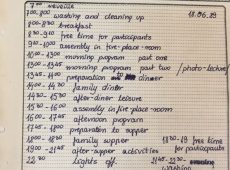 7⁰⁰ reveille
7⁰⁰-8⁰⁰ washing and cleaning up 18.06.29
8⁰⁰-8³⁰ breakfast
8³⁰-9¹⁰ free time for participants
9¹⁰-10⁰⁰ assembly in fire-place-room
10⁰⁰-13⁰⁰ morning program part one
morning program part two /photo-lecture/
13⁴⁵-14⁰⁰ preparation to dinner
14⁰⁰-14³⁰ family dinner
14³⁰- after-dinner leisure
assembly in fire-place-room
16⁰⁰- afternoon program
preparation to supper
18⁰⁰-18³⁰ family supper 18³⁰-19 free time for participants
19⁰⁰-21⁴⁵ after-supper activities
22³⁰ lights off. 21⁴⁵-22³⁰ washing